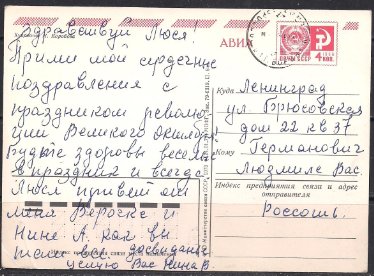 Здравствуй Люся!
Прими мои сердечные
поздравления с
праздником револю
ции Великого октября.
Будьте здоровы веселы
в праздник и всегда.
Люся привет от
меня Верочке и
Нине А. как вы
до свидания
целую Вас Нина В
АВИА
ПОЧТА СССР
4 КОП.
Куда Ленинград
ул Брюсовская
дом 22 кв 37
Кому Германович
Людмиле Вас.
Индекс предприятия связи и адрес
отправителя
Россошь